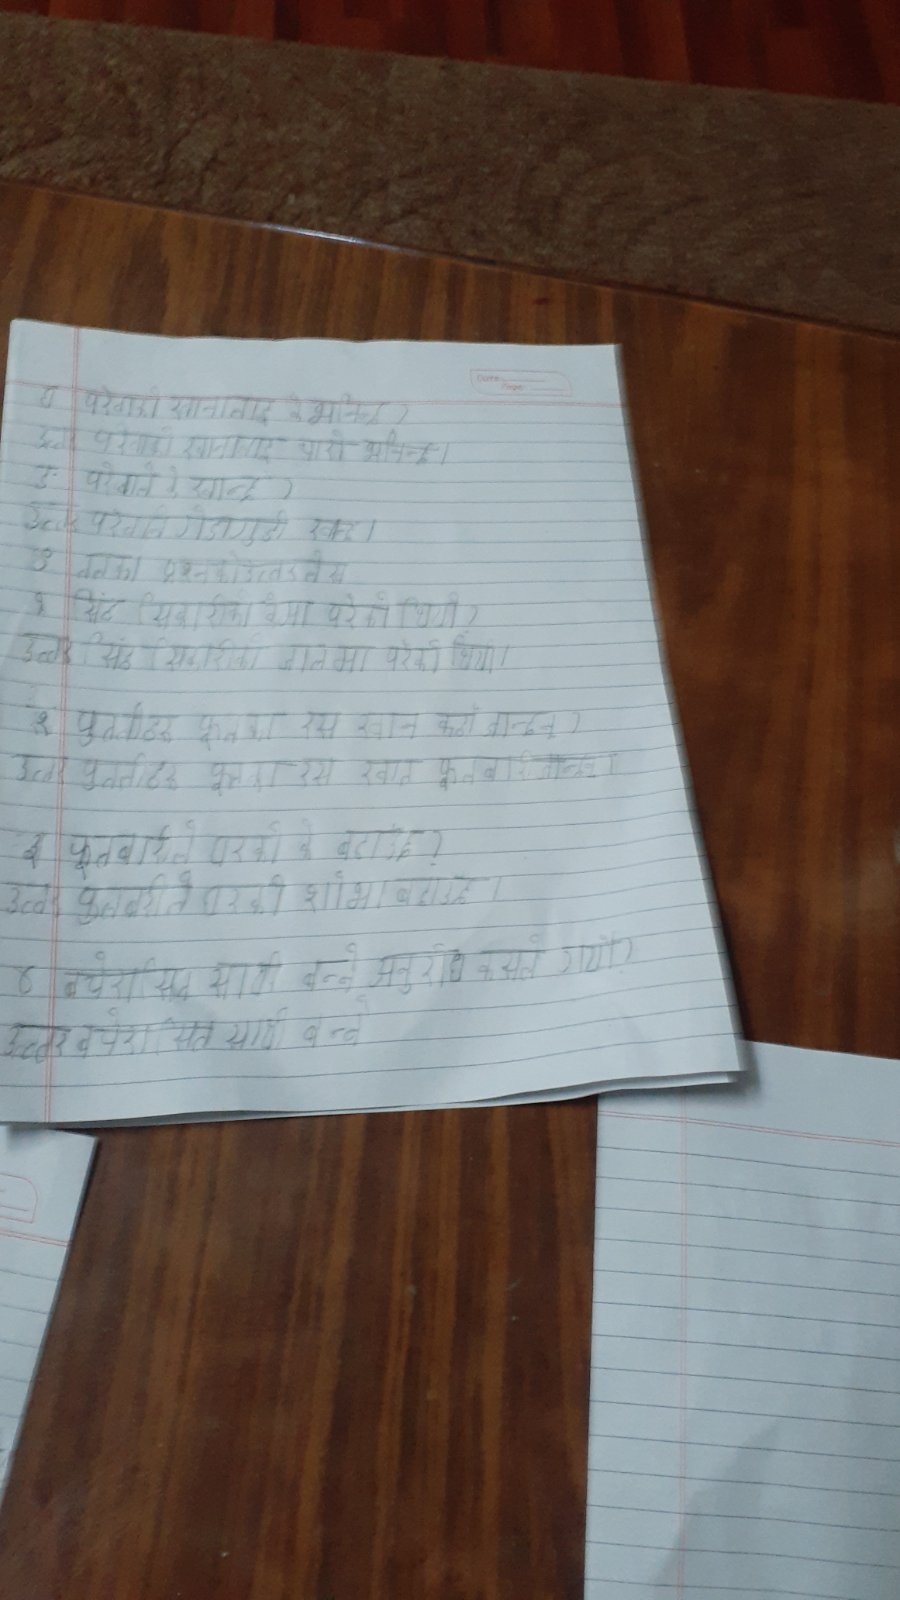 Date
Page
परेवाको खानालाई के भनिन्छ?
उत्तर परेवाको खानालाई चारो भनिन्छ।
परेवाले के खान्छ?
उत्तर परेवाले गेडागुडी खान्छ।
तलका प्रश्नको उत्तर
सिंह सिकारीको केमा परेको थियो?
उत्तर सिंह सिकारीको जालमा परेको थियो।
२ पुतलीहरू फूलका रस खान कहाँ जान्छन्?
उत्तर पुतलीहरू फूलका रस खान फूलबारी जान्छन्।
३ फूलबारीले घरको के बढाउँछ?
उत्तर फुलबारीले घरको शोभा बढाउछ।
४ बघेरासित साथी बन्ने अनुरोध कसले गर्यो?
उत्तर बघेरासित साथी बन्ने